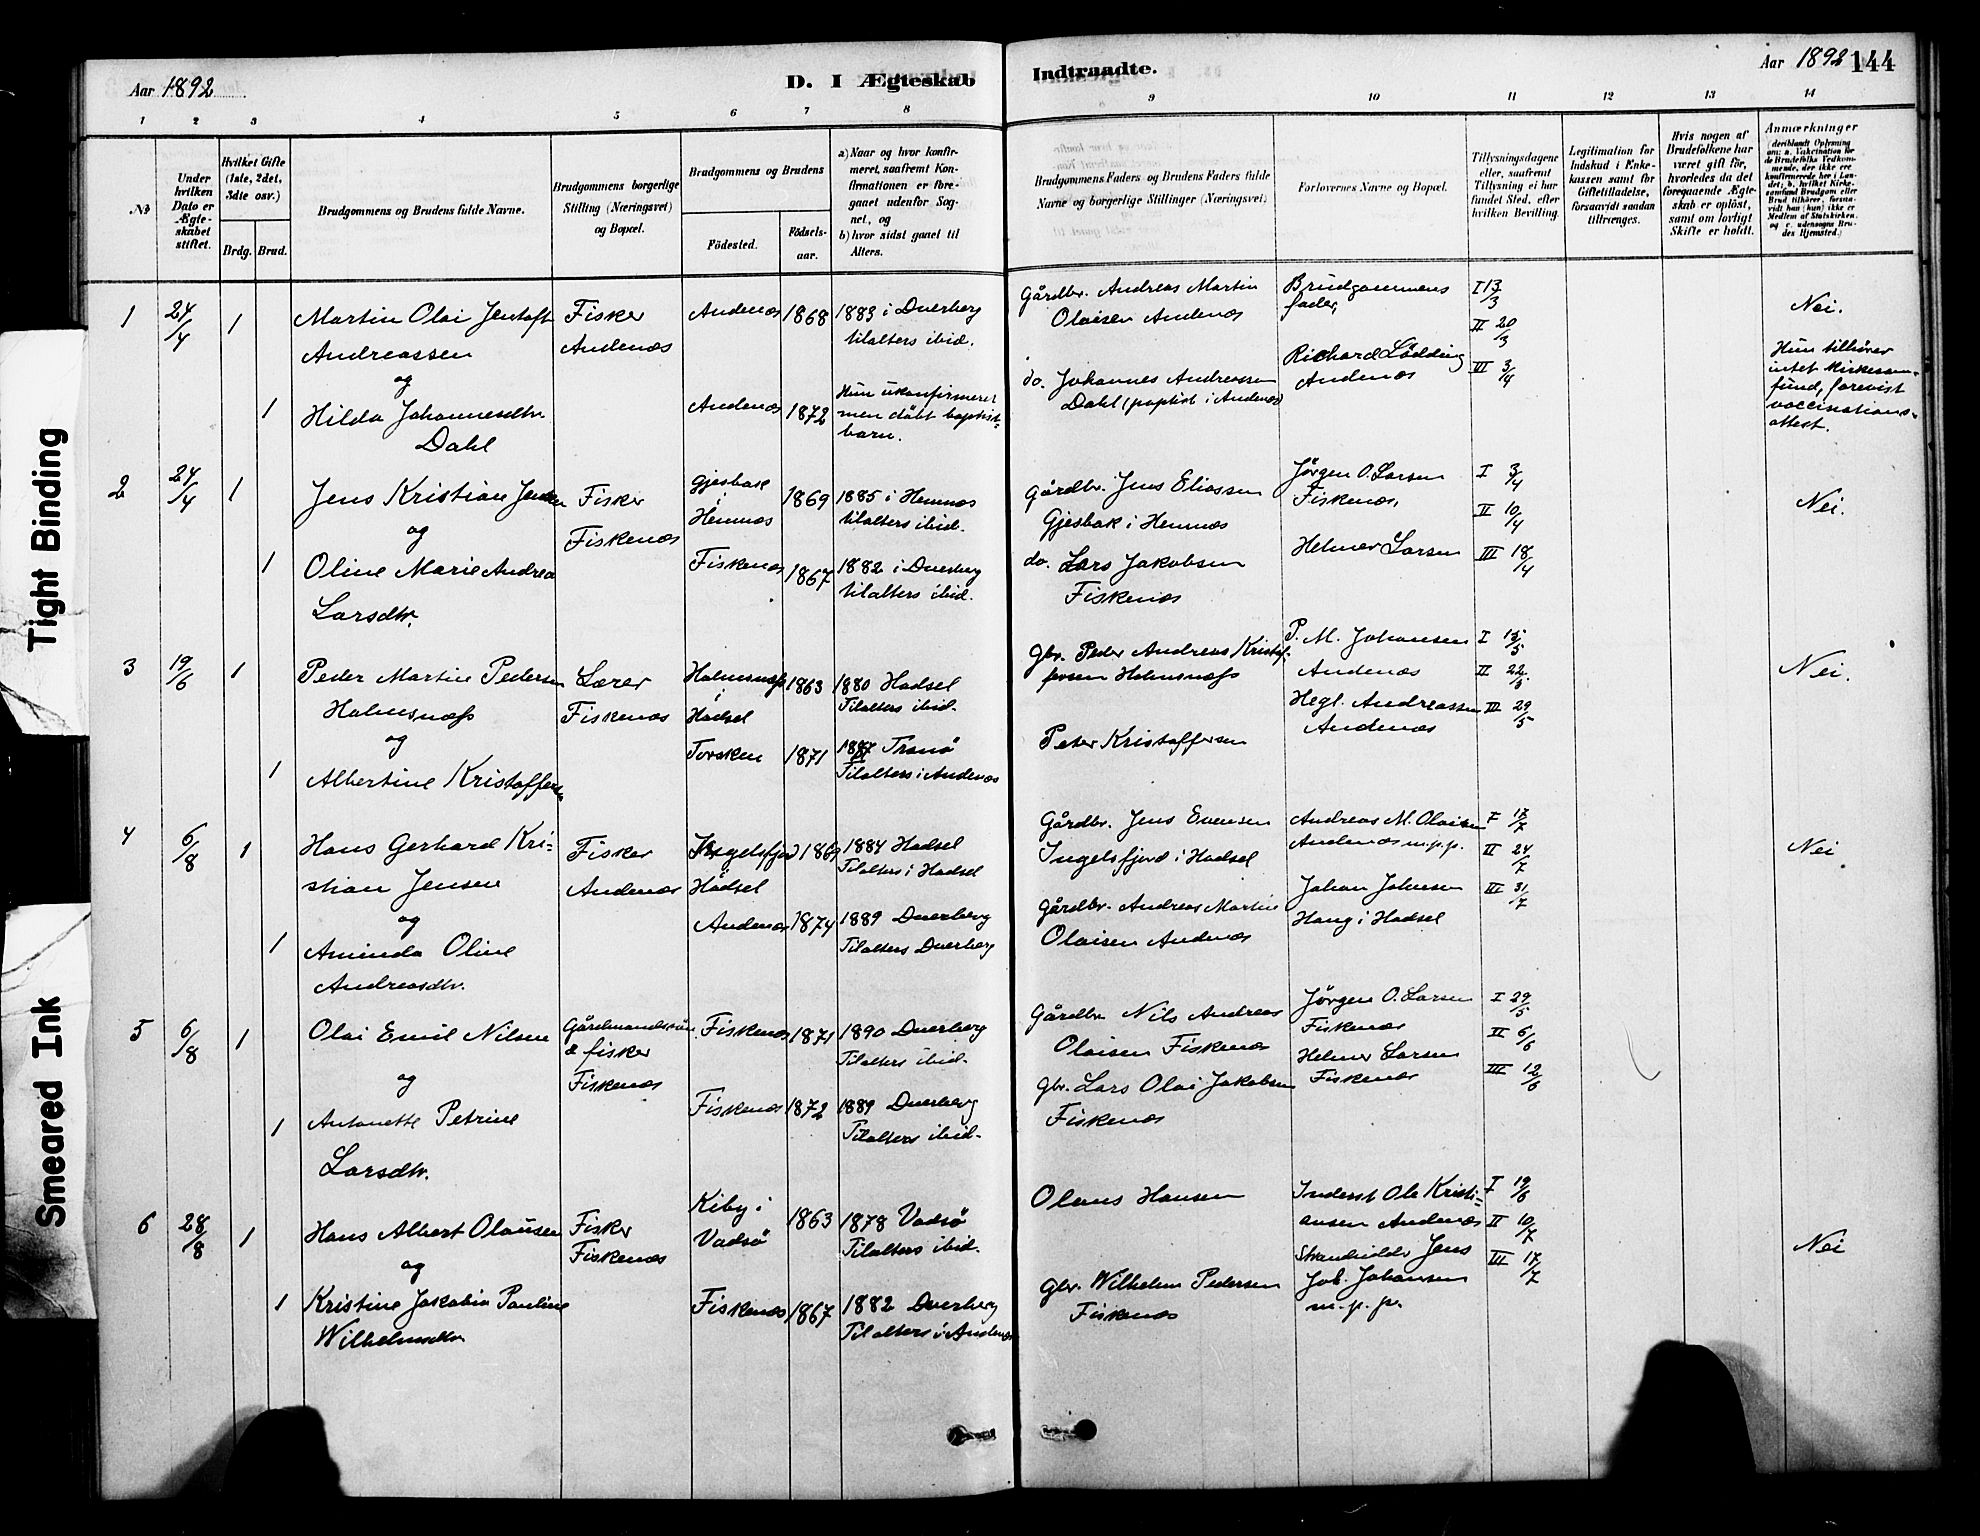 Aar 1892
D. I Ægteskab
Indtraadte.
Aar 1892 144
Tight Binding
Smeared Ink
1 2 3 4 5 6 7 8 9 10 11 12 13 14
№
Under hvilken Dato er Ægteskabet stiftet.
Hvilket Gifte (1ste, 2det, 3dte osv.)
Brdg. Brud.
Brudgommens og Brudens fulde Navne.
Brudgommens borgerlige Stilling (Næringsvei) og Bopæl.
Brudgommens og Brudens
Födested.
Födselsaar.
a) Naar og hvor konfirmeret, saafremt Konfirmationen er foregaaet udenfor Sognet, og
b) hvor sidst gaaet til Alters.
Brudgommens Faders og Brudens Faders fulde Navne og borgerlige Stillinger (Næringsvei)
Forlovernes Navne og Bopæl.
Tillysningsdagene eller, saafremt Tillysning ei har fundet Sted, efter hvilken Bevilling.
Legitimation for Indskud i Enkekassen samt for Giftetilladelse, forsaavidt saadan tiltrænges.
Hvis nogen af Brudefolkene har været gift för, hvorledes da det foregaaende Ægteskab er oplöst, samt om lovligt Skifte er holdt.
Anmærkninger (deriblandt Oplysning om: a. Vakcination for de Brudefolks Vedkommende, der ikke ere konfirmerede her i Landet; b. hvilket Kirkesamfund Brudgom eller Brud tilhörer, forsaavidt han (hun) ikke er Medlem af Statskirken, og c. udensogns Brudes Hjemsted.)
1 24/4 1 Martin Olai Jentoft Andreassen
Fisker Andenæs
Andenæs 1868
1883 i Dverberg tilalters ibid.
Gårdbr. Andreas Martin Olaisen Andenæs
Brudgommens fader,
I 13/3
II 20/3
III 3/4
Nei.
og
1 Hilda Johannesdtr. Dahl
Andenæs 1872
Hun ukonfirmeret men döbt baptistbarn.
do. Johannes Andreassen Dahl (baptist i Andenæs)
Richard Lödding Andenæs
Hun tilhører intet kirkesamfund, forevist vaccinationsattest.
2 24/4 1 Jens Kristian Jensen
Fisker Fiskenæs
Gjesbak i Hemnæs 1869
1885 i Hemnæs tilalters ibid.
Gårdbr. Jens Eliassen Gjesbak i Hemnæs
Jörgen O. Larsen Fiskenæs,
I 3/4
II 10/4
III 18/4
Nei.
og
1 Oline Marie Andrea Larsdtr.
Fiskenæs 1867
1882 i Dverberg tilalters ibid.
do. Lars Jakobsen Fiskenæs
Helmer Larsen
3 19/6 1 Peder Martin Pedersen Holmsnæss
Lærer Fiskenæs
Holmsnæss i Hadsel 1863
1880 Hadsel Tilalters ibid.
Gbr. Peder Andreas Kristoffersen Holmsnæss
P. M. Johansen Andenæs
I 15/5
II 22/5
III 29/5
Nei.
og
1 Albertine Kristoffersen
Torsken 1871
1887 Tranö Tilalters i Andenæs
Peter Kristoffersen
Hegl. Andreassen Andenæs
4 6/8 1 Hans Gerhard Kristian Jensen
Fisker Andenæs
Ingelsfjord Hadsel 1869
1884 Hadsel Tilalters i Hadsel
Gårdbr. Jens Evensen Ingelsfjord i Hadsel
Andreas M. Olaisen Andenæs m.p.p.
I 17/7
II 24/7
III 31/7
Nei
og
1 Aminda Oline Andreasdtr.
Andenæs 1874
1889 Dverberg Tilalters Dverberg
Gårdbr. Andreas Martin Olaisen Andenæs
Johan Johnsen Haug i Hadsel
5 6/8 1 Olai Emil Nilsen
Gårdmandssön & fisker Fiskenæs
Fiskenæs 1871
1890 Dverberg Tilalters ibid.
Gårdbr. Nils Andreas Olaisen Fiskenæs
Jörgen O. Larsen Fiskenæs
I 29/5
II 6/6
III 12/6
og
1 Antonette Petrine Larsdtr.
Fiskenæs 1872
1889 Dverberg Tilalters ibid.
Gbr. Lars Olai Jakobsen Fiskenæs
Helmer Larsen Fiskenæs
6 28/8 1 Hans Albert Olausen
Fisker Fiskenæs
Kiby i Vadsö 1863
1878 Vadsö Tilalters ibid.
Olaus Hansen
Inderst Ole Kristiansen Andenæs
I 19/6
II 10/7
III 17/7
Nei
og
1 Kristine Jakobia Pauline Wilhelmsdtr
Fiskenæs 1867
1882 Dverberg Tilalters i Andenæs
Gbr. Wilhelm Pedersen Fiskenæs
Strandsidder Jens Joh. Johansen m.p.p.